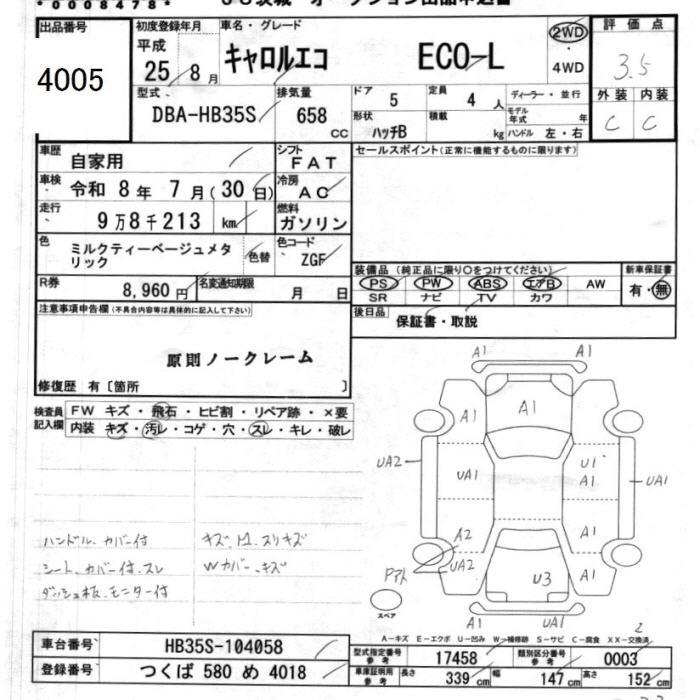 0008478
出品番号
4005
初度登録年月
平成
25年 8月
車名・グレード
キャロルエコ ECO-L
2WD
・
4WD
評価点
3.5
型式
DBA-HB35S
排気量
658 CC
ドア 5
定員 4 人
形状 ハッチB
積載 kg
ディーラー・並行
モデル年式 年
ハンドル 左・右
外装 内装
C C
車歴 自家用
シフト FAT
セールスポイント(正常に機能するものに限ります)
車検 令和 8年 7月(30日)
冷房 AC
走行 9万8千213 km
燃料 ガソリン
色 ミルクティーベージュメタリック
色替
色コード ZGF
R券 8,960円
名変通知期限 月 日
装備品(純正品に限り○をつけてください)
PS PW ABS エアB AW
SR ナビ TV カワ
新車保証書
有・無
後日品 保証書・取説
注意事項申告欄(不具合内容等は具体的に記入して下さい)
原則ノークレーム
修復歴 有〔箇所 〕
検査員記入欄
FW キズ・飛石・ヒビ割・リペア跡・×要
内装 キズ・汚レ・コゲ・穴・スレ・キレ・破レ
ハンドル、カバー付
シート、カバー付、スレ
ダッシュ板、モニター付
Wカバー、キズ
A1 A1
A1 A1 A1
UA2 UA1 U1 A1 UA1
A2 UA2 A1
U3 A1
A1 UA1
スペア
A-キズ E-エクボ U-凹み W-補修跡 S-サビ C-腐食 XX-交換済
車台番号 HB35S-104058
登録番号 つくば 580 め 4018
型式指定番号 参考 17458
類別区分番号 参考 0003
車庫証明用 参考 長さ 339 cm 幅 147 cm 高さ 152 cm